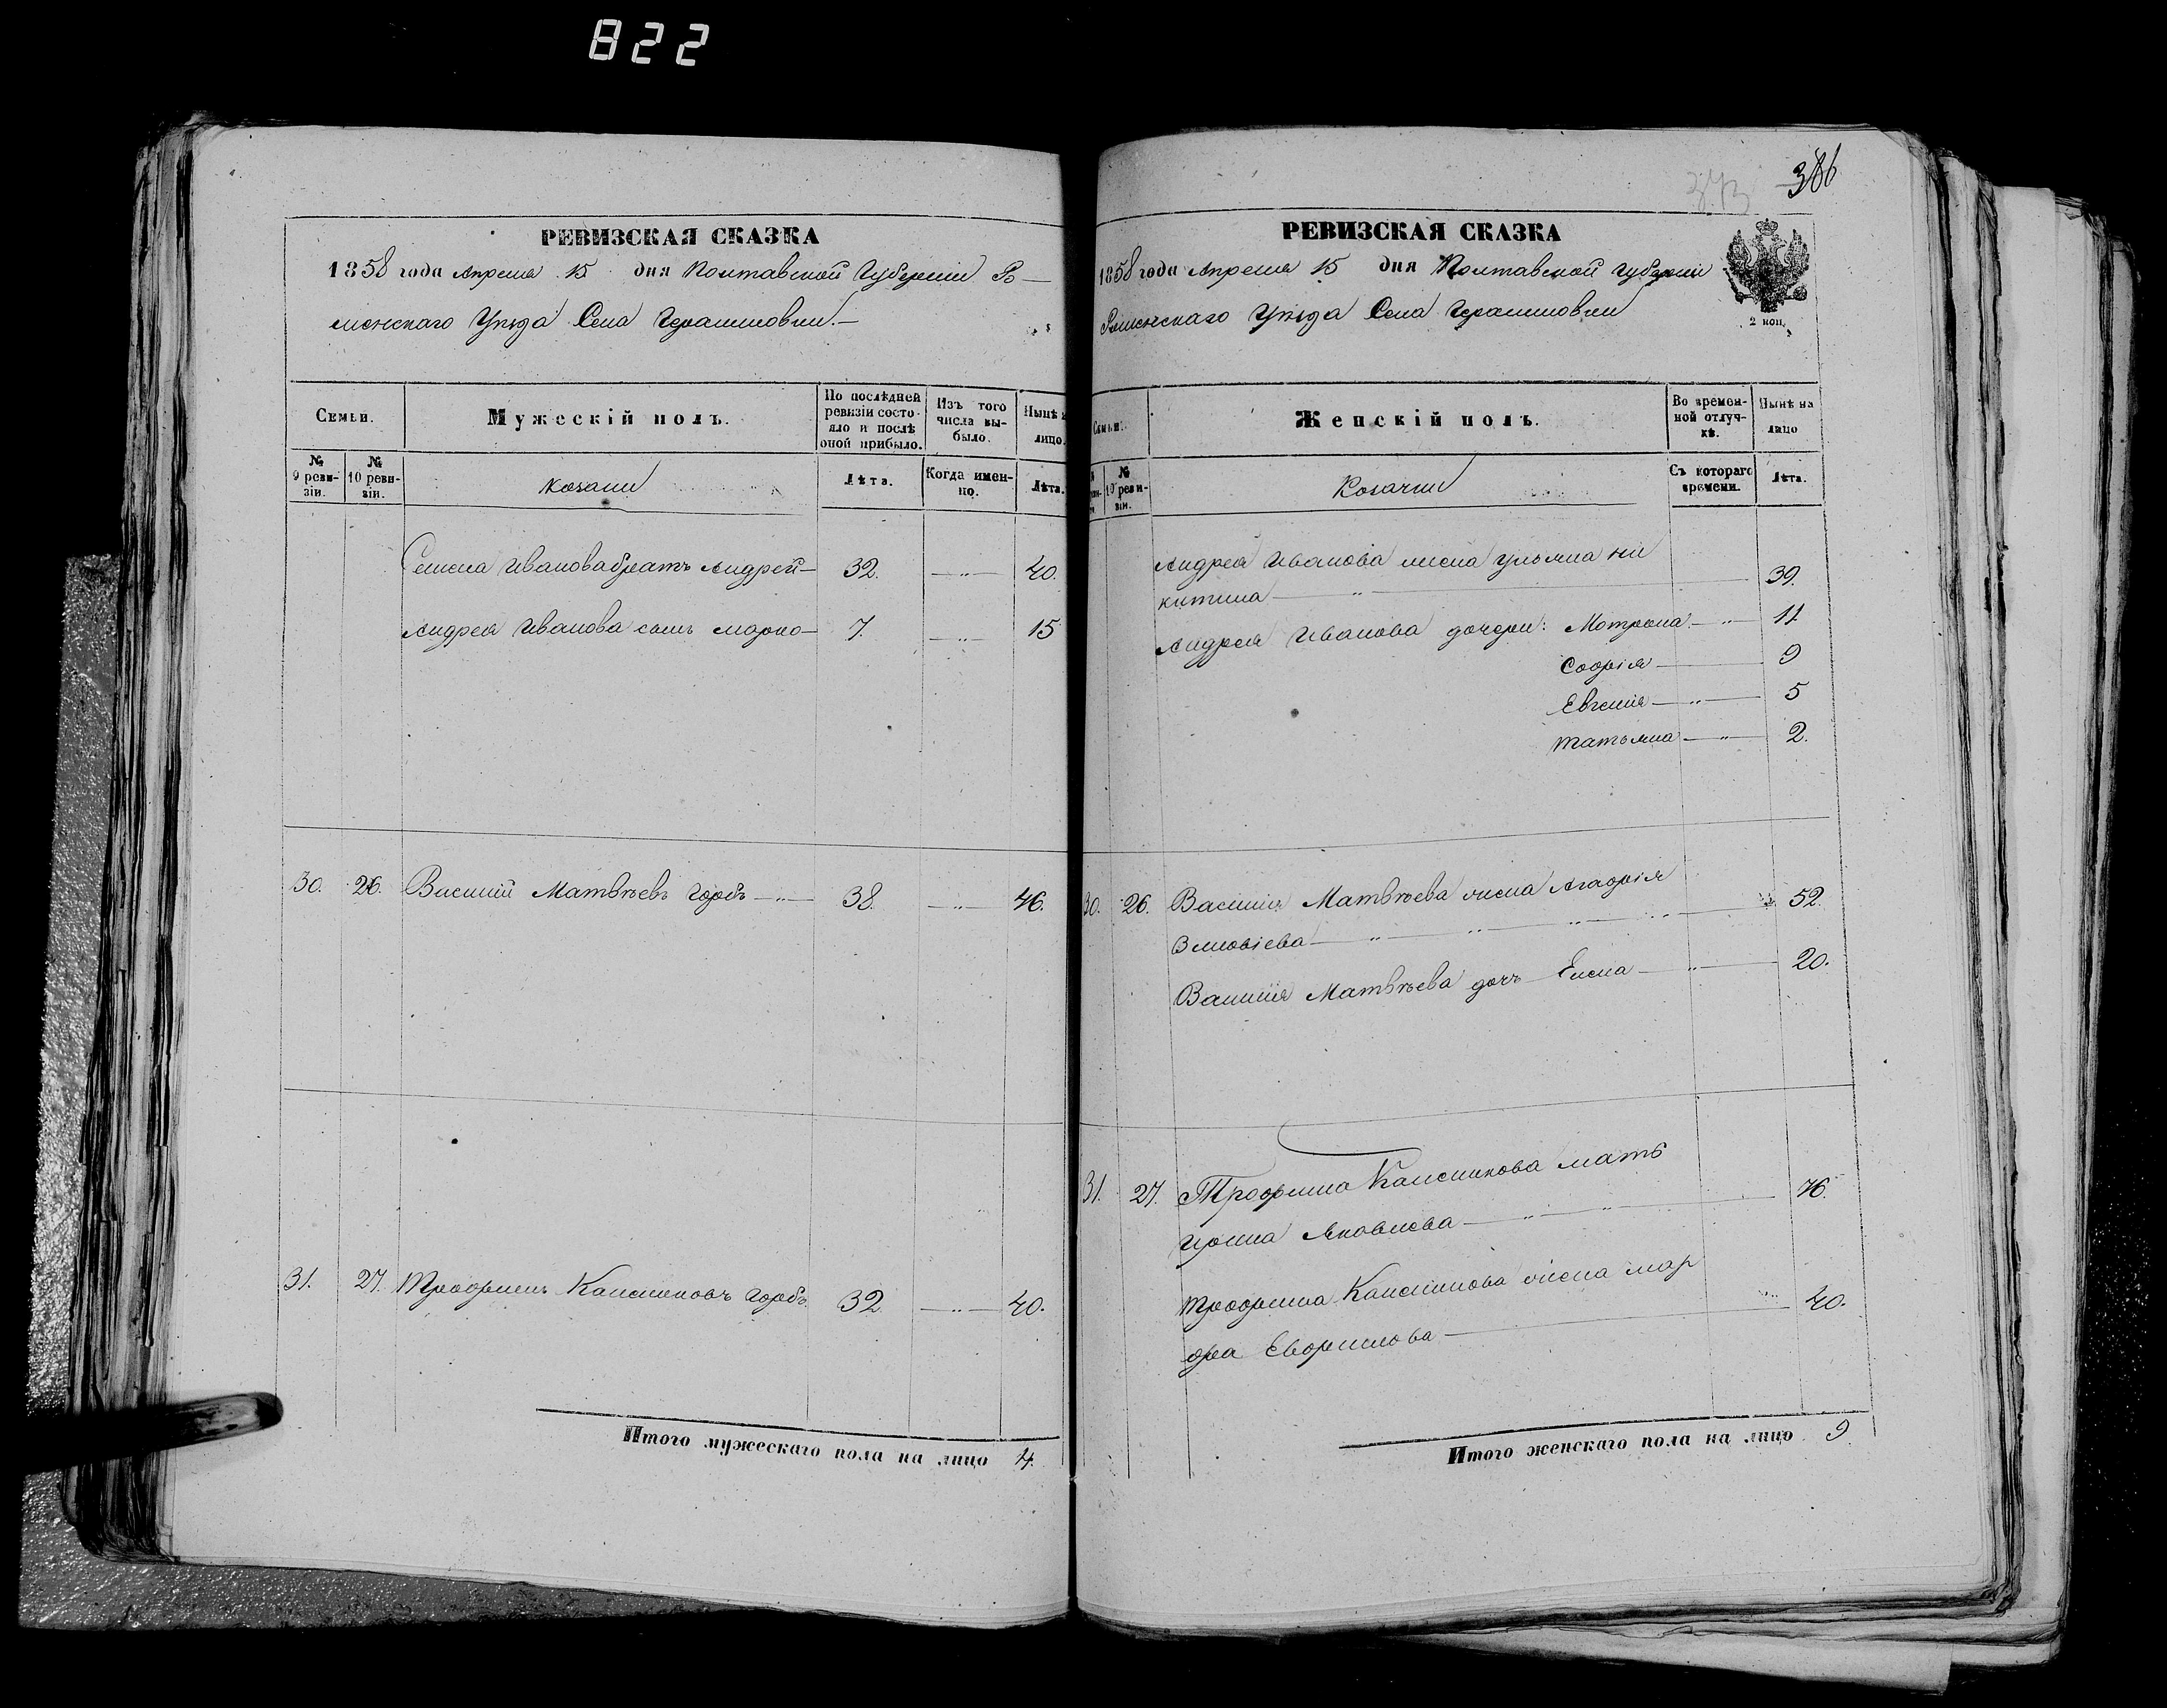 822
РЕВИЗСКАЯ СКАЗКА
1858 года Апреля 15 дня Полтавской Губерніи Ро-
менскаго Уѣзда Села Герасимовки.—
Семьи.
Мужескій полъ.
По послѣдней ревизіи состояло и послѣ оной прибыло.
Изъ того числа выбыло.
Нынѣ
лицо.
№ 9 ревизіи.
№ 10 ревизіи.
Козаки
Лѣта.
Когда именно.
Лѣта.
Семена Иванова братъ Андрей— 32. —„— 40.
Андрея Иванова сынъ Марко— 7. —„— 15
30. 26. Василій Матвѣевъ Горбъ —„— 38. —„— 46.
31. 27. Трофимъ Калениковъ Горбъ. 32 —„— 40.
Итого мужескаго пола на лицо 4.
386
373
РЕВИЗСКАЯ СКАЗКА
1858 года Апреля 15 дня Полтавской Губерніи
Роменскаго Уѣзда Села Герасимовки
2 коп.
Семьи.
Женскій полъ.
Во временной отлучкѣ.
Нынѣ на лицо
№ 10 ревизіи.
Козачки
Съ котораго времени.
Лѣта.
Андрея Иванова жена Ульяна Ни
китина —„— 39.
Андрея Иванова дочери: Мотрона —„— 11
Софія — 9
Евгенія —„— 5
Татьяна —„— 2.
30. 26. Василія Матвѣева жена Агафія
Зиновіева —„—„—„— 52.
Василія Матвѣева дочь Елена —„— 20.
31. 27. Трофима Каленикова мать
Ирина Яковлева —„—„— 76.
Трофима Каленикова жена Мар
фа Евфимова — 40.
Итого женскаго пола на лицо 9.